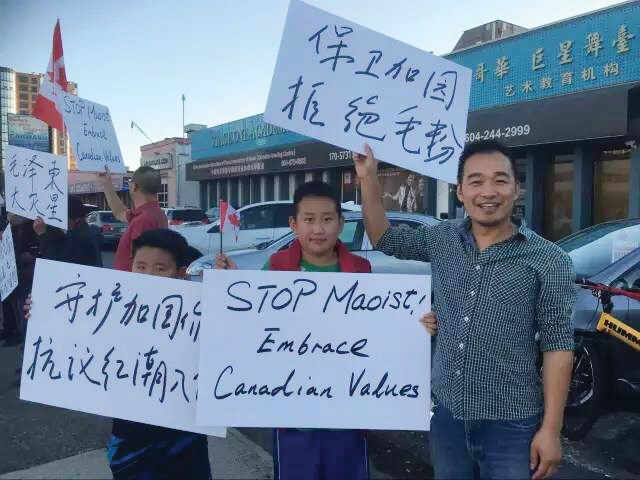 保卫加国
拒绝毛粉
STOP Maoist
Embrace
Canadian Values
毛泽東
大灾星
哥華 巨星舞臺
艺术教育机构
604-244-2999
170-5731
守护加国价
抗议红潮入
STOP Maoist!
Embrace
Canadian Values
HUMM